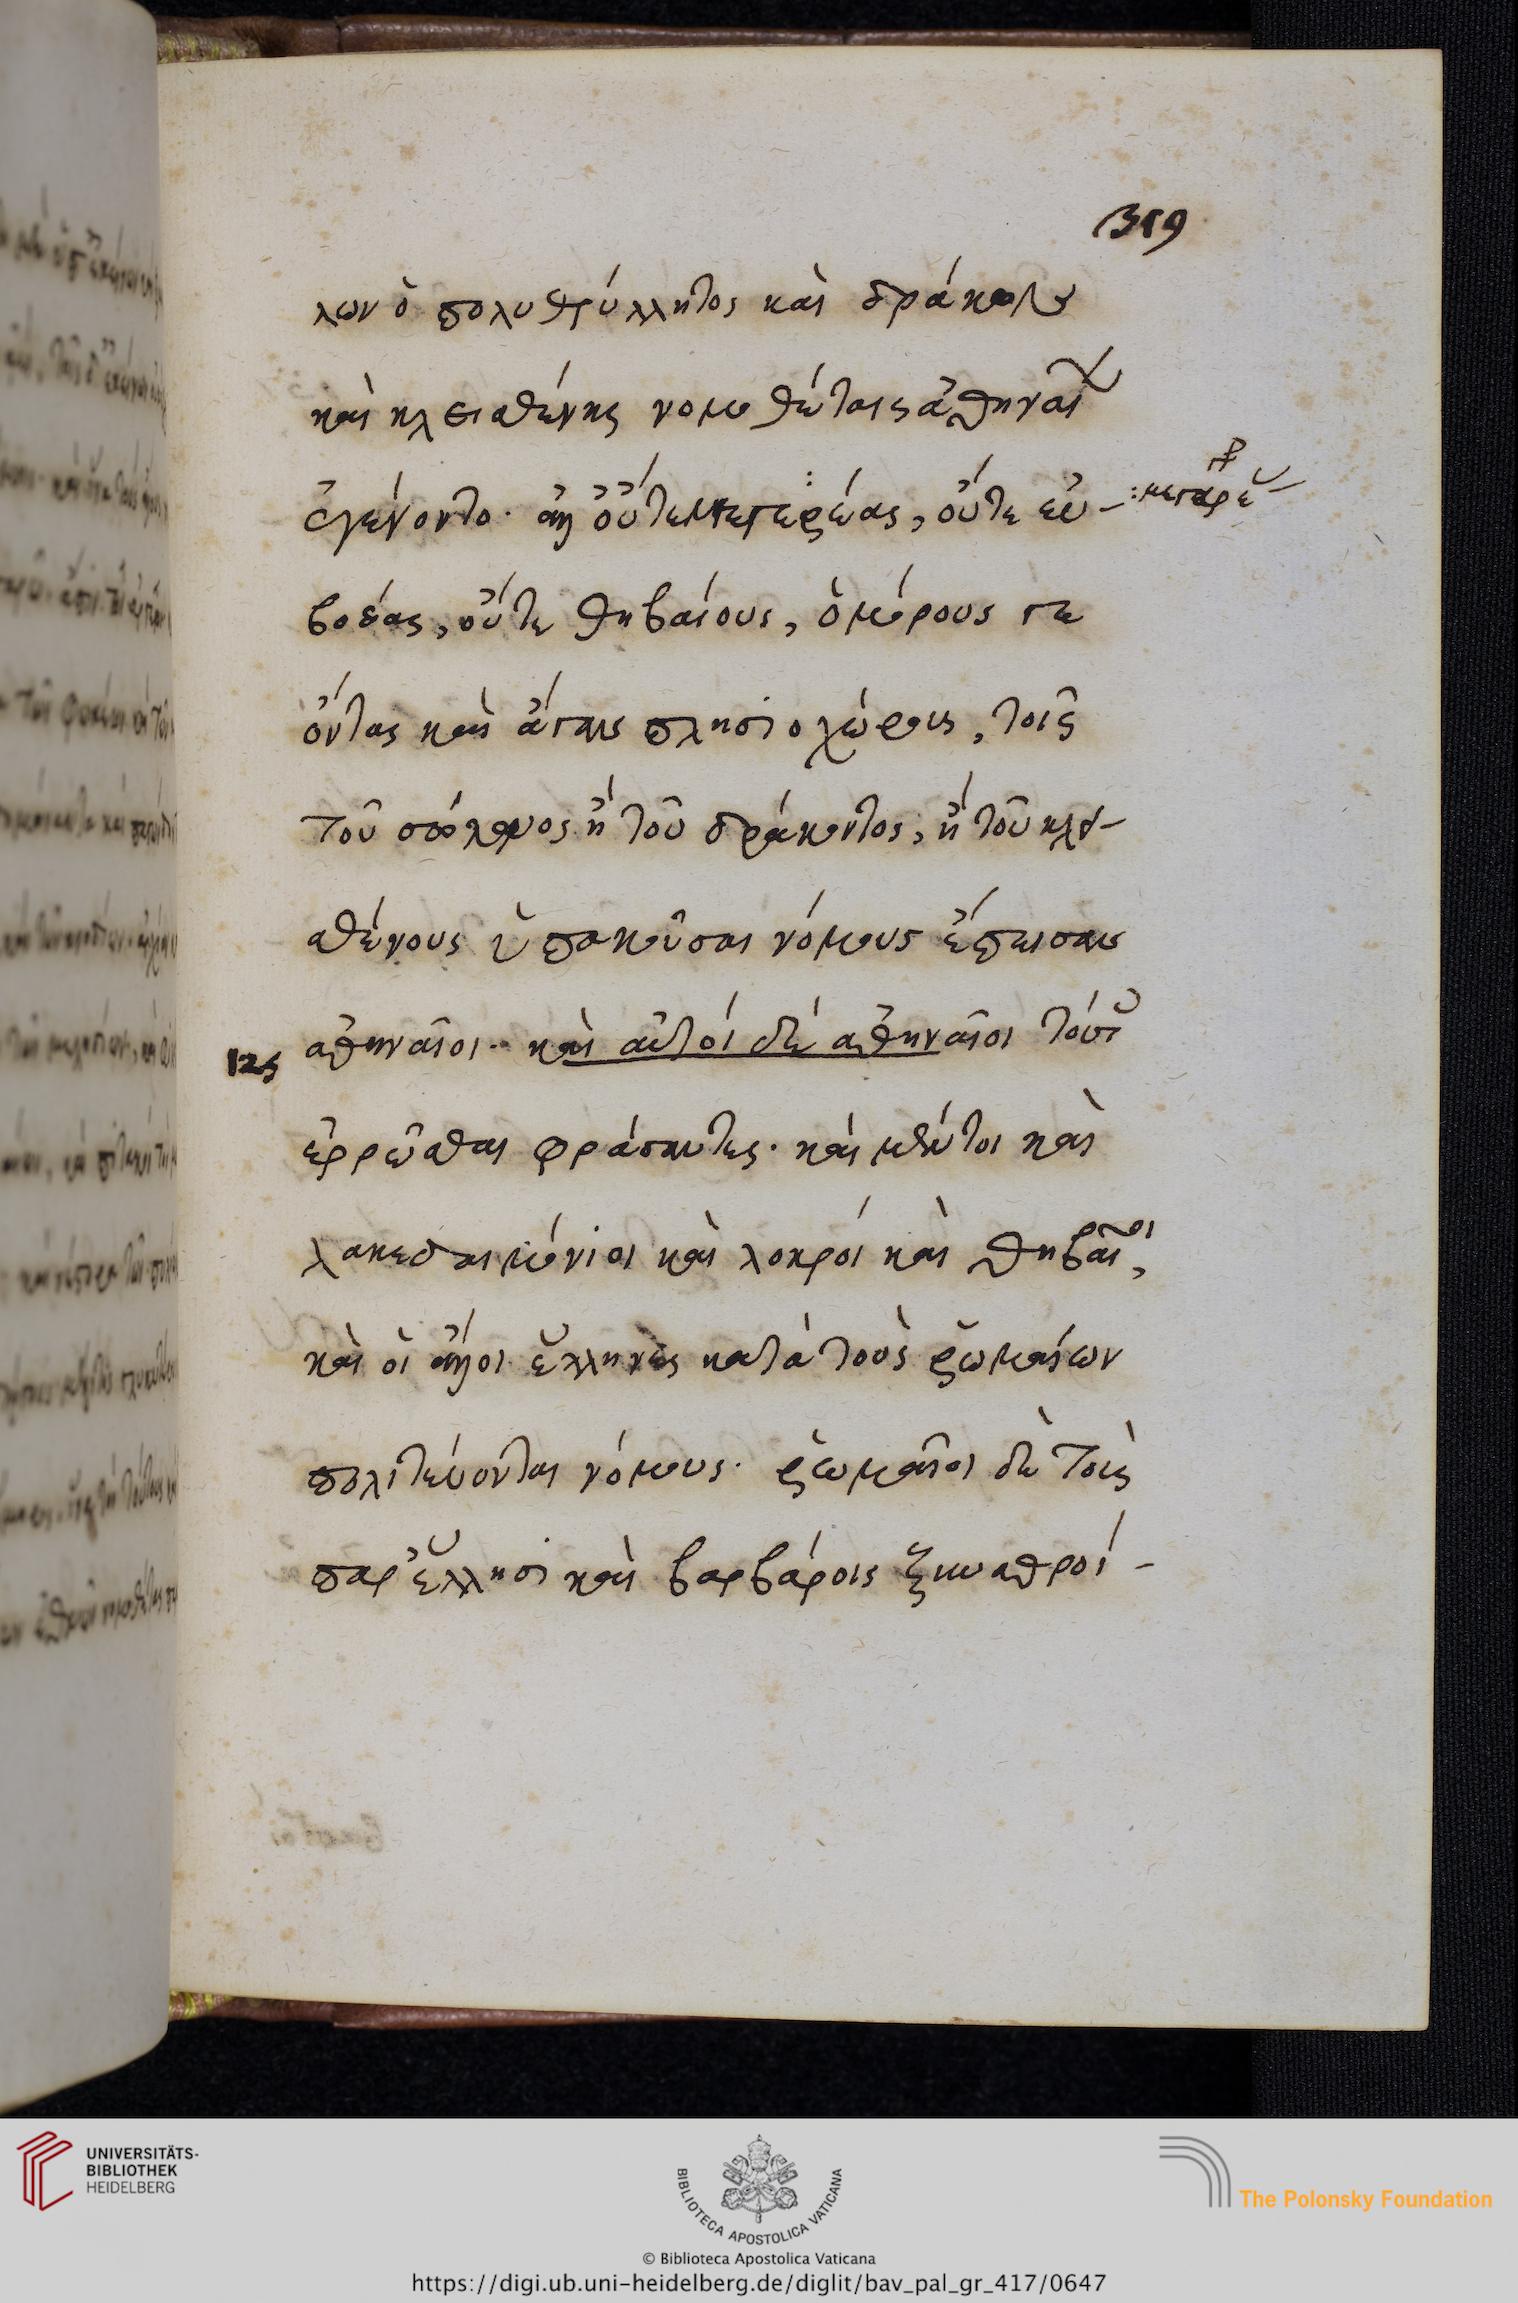 319
λων ὁ πολυθρύλλητος καὶ δράκων
καὶ κλεισθένης νομοθέταις ἀθηναί
ἐγένοντο. ἀλλ' οὔτε μεγαρέας, οὔτε εὐ-
: μεγαρέ
βοέας, οὔτε θηβαίους, ὁμόρους γε
ὄντας καὶ ἄγαν πλησιοχώρους, τοῖς
τοῦ σόλωνος ἢ τοῦ δράκοντος, ἢ τοῦ κλει-
σθένους ὑπακοῦσαι νόμους ἔπεισαν
125
ἀθηναῖοι. καὶ αὐτοὶ δὲ ἀθηναῖοι τούτ
ἐρρῶσθαι φράσαντες. καὶ μέντοι καὶ
λακεδαιμόνιοι καὶ λοκροί καὶ θηβαῖοι,
καὶ οἱ ἄλλοι ἕλληνες κατὰ τοὺς ῥωμαίων
πολιτεύονται νόμους. ῥωμαῖοι δὲ τοῖς
παρ' ἕλλησι καὶ βαρβάροις ξυναθροί-
UNIVERSITÄTS-
BIBLIOTHEK
HEIDELBERG
BIBLIOTECA APOSTOLICA VATICANA
The Polonsky Foundation
© Biblioteca Apostolica Vaticana
https://digi.ub.uni-heidelberg.de/diglit/bav_pal_gr_417/0647